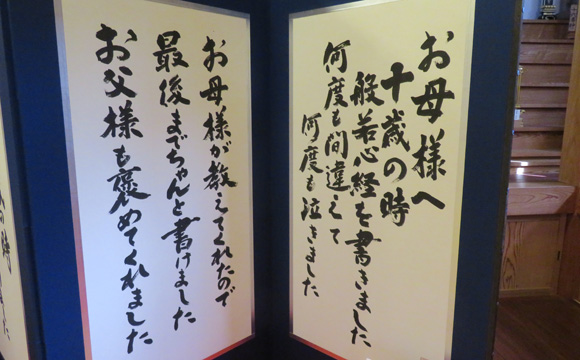 お母様へ
十歳の時
般若心経を書きました
何度も間違えて
何度も泣きました
お母様が教えてくれたので
最後までちゃんと書けました
お父様も褒めてくれました